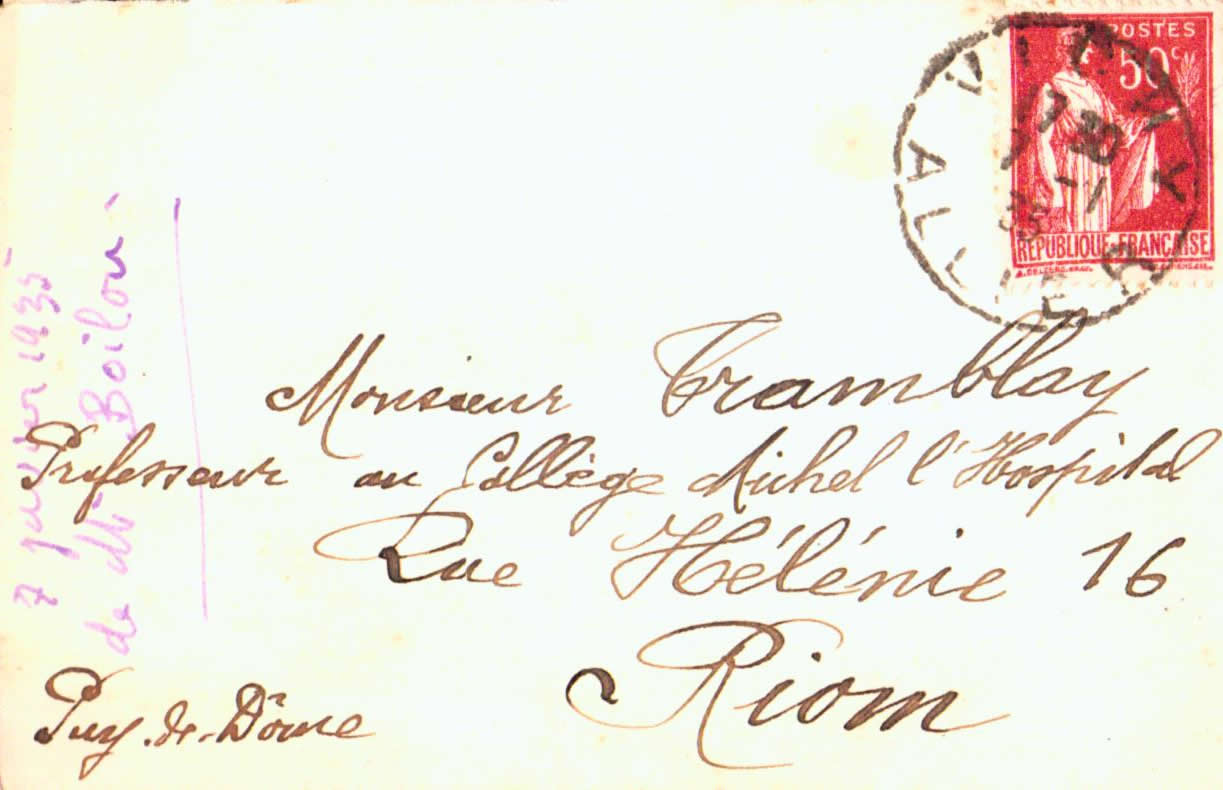 POSTES
50c
REPUBLIQUE FRANÇAISE
VICHY
17 30
7 -1
35
ALLIER
7 janvier 1935
de Mr Boilon
Monsieur Tramblay
Professeur au Collège Michel l'Hospital
Rue Hélénie 16
Riom
Puy-de-Dôme